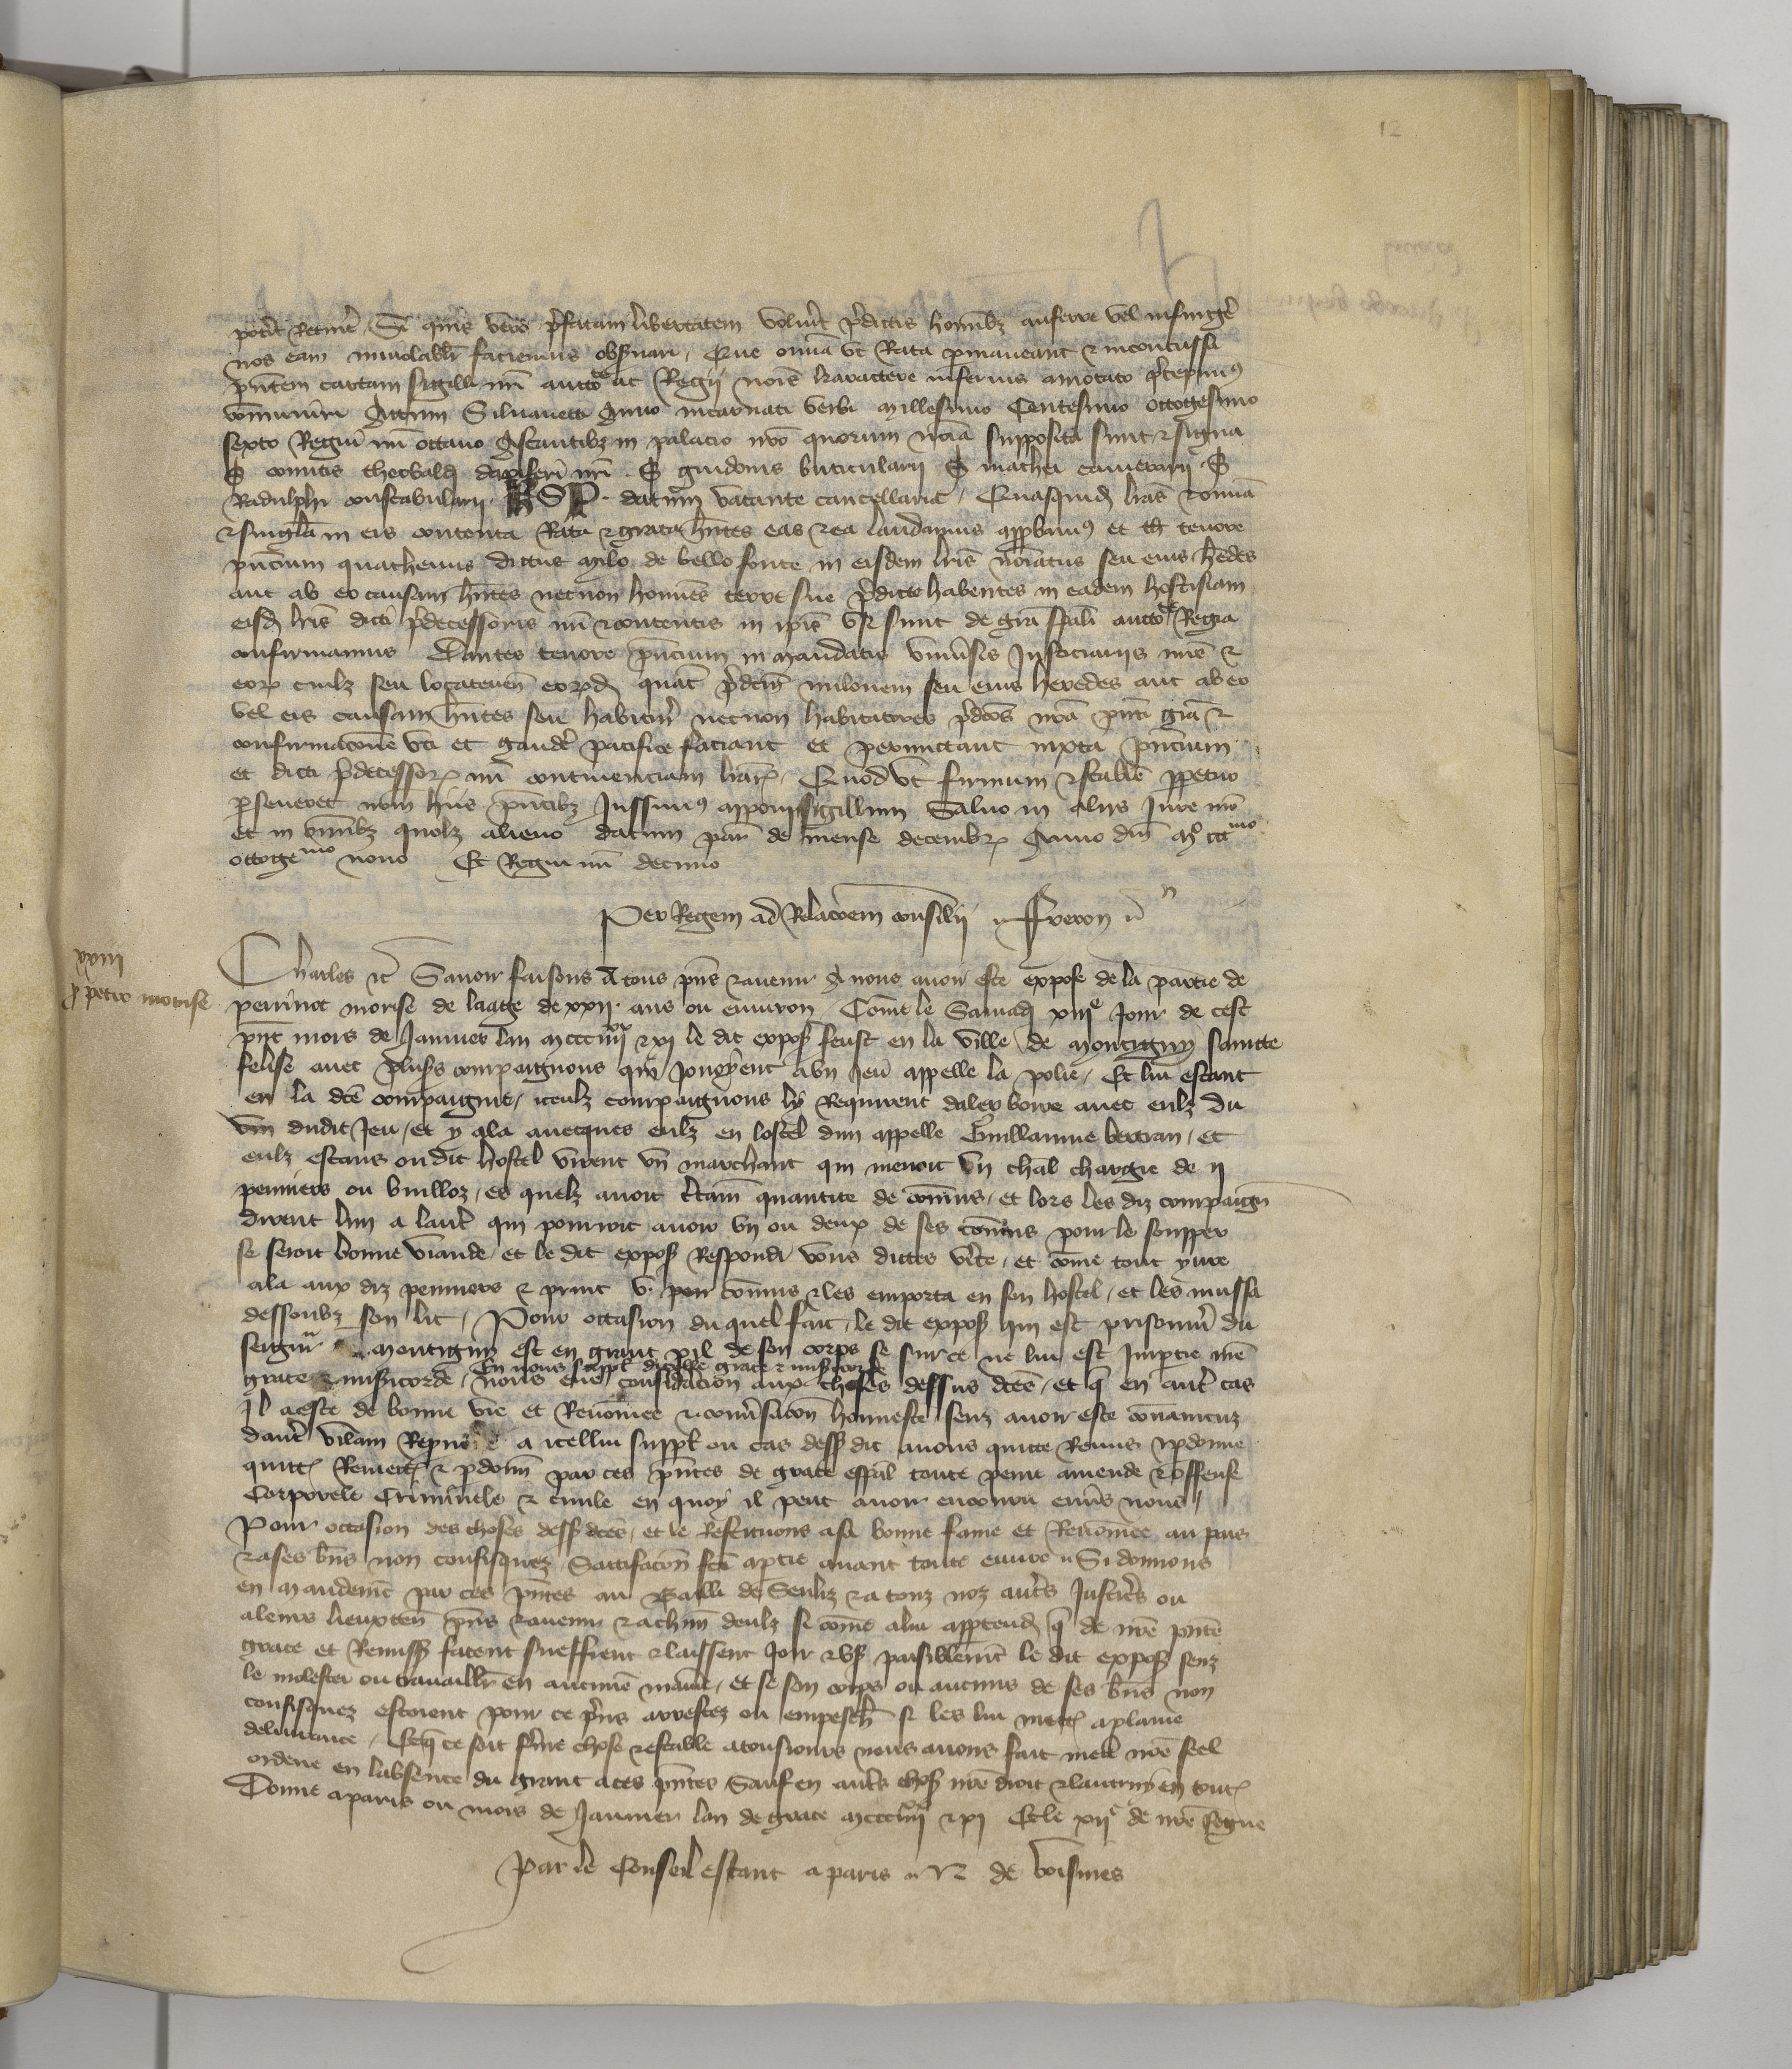 12
pot̃it retin̄e / Si quis vero p̄fatam libertatem voluit̃ p̄dictis homībz auferre vel infringẽ
nos eam inviolabilr̃ faciemus obs̃vari / Que om̄ia ut rata p̱maneant ⁊ inconcussa
p̄ntem cartam sigilli nr̄i auctote ac Regii nōis karactere inferius an̄otato p̄cepim⁹
com̄uniri Actum Silvanecti Anno incarnati verbi millesimo Centesimo octogesimo
sexto Regni nr̄i octavo Astantibz in palacio nr̄o quorum noīa supposita sunt ⁊ signa
S comitis theobaldi dapiferi nr̄i . S guidonis buticularii S mathei camerarii S
Radulphi constabularii . KSP . datum vacante cancellaria / Quasquid̃ lr̄as ⁊ om̄ia
⁊ singl̄a in eis contenta rata ⁊ grata h̄ntes eas ⁊ ea laudamus app̱bam⁹ et tenore
p̄ncium quathenus dictus milo de bello fonte in eisdem lr̄is noīatus seu eius h̄edes
aut ab eo causam h̄ntes necnon homīes terre sue p̄dicte habentes in eadem hostisiam
eisd̃ lr̄is dicti p̄decessoris nr̄i ⁊ contentis in ip̄is usi sunt de grā sp̄ali auctote Regia
confirmamus Dantes tenore p̄ncium in mandatis univ̄sis Justiciariis nr̄is ⁊
eoꝝ cuilz seu locatenen̄ eoꝝd̃ quat̃ p̄dc̄m milonem seu eius heredes aut ab eo
vel eis causam h̄ntes seu habitur̃ necnon habitatores p̄dc̄os nr̄a p̄nti grā ⁊
confirmac̄one uti et gaudẽ pacifice faciant et permictant iuxta p̄ncium
et dicti p̄decessoꝝ nr̄i continenciam lr̄aꝝ / Quod ut firmum ⁊ stabile p̱petuo
p̱severet nr̄m hiis p̄ntibz Jussim⁹ apponi sigillum Salvo in aliis Jure nr̄o
et in om̄ibz quolz alieno datum par̃ de mense decembꝝ Anno dn̄i M° ccc mo
octoge mo nono Et Regni nr̄i decimo
Per Regem ad Relac̄oem consilii .. Freron
xxiiii
p̱ petro morise
Charles ⁊c̃ Savoir faisons A tous p̄ns ⁊ avenir A nous avoir este expose de la partie de
perrinot morise de laage de xxii . ans ou environ Com̄e le Samed̃ xiiie Jour de cest
p̄nt mois de Janvier lan mccciiiixx ⁊ xi le dit expos̃ feust en la ville de montigny saincte
felise avec plus̃s compaignons qui Jouoyent a un Jeu appelle la polie / Et lui estant
en la dc̄e compaignie / iceulz compaignons ly Requirent daler boire avec eulz du
vin dudit Jeu / et y ala avecques eulz en lostel dun appelle Guillaume bertran / et
eulz estans ou dit hostel virent un marchant qui menoit un ch̄al chargie de ii
penniers ou builloz / es quelz avoit c̃taine quantite de con̄ins / et lors les diz compaign̄
dirent lun a laut̃ qui pourroit avoir un ou deux de ses con̄ins pour le soupper
se seroit bonne viande / et le dit expos̃ respondi vous dictes v̄ite / et com̄e tout yvre
ala aux diz penniers ⁊ print v . con̄ins ⁊ les emporta en son hostel / et les mussa
dessoubz son lit / Pour occasion du quel fait / le dit expos̃ qui est prisonnĩ du
seignr de montigny est en grant p̱il de son corps se sur ce ne lui est Imp̱tie nr̄e
En nous suppl̃ dicelle grace ⁊ misericorde
grace ⁊ mis̃icorde / Nous eue consid̄acion aux choses dessus dc̄es / et q̄ en aut̃ cas
il a este de bonne vie et Renōmee ⁊ conv̄sac̄on honneste senz avoir este convaincuz
daut̃ vilain Reprouche a icellui suppl̃ ou cas dess̃ dit avons quitte Remis ⁊ p̱donne
quitt̃ remett̃ ⁊ p̱donn̄ par ces p̄ntes de grace esp̄al toute peine amende ⁊ offense
Corporele Criminele ⁊ civile en quoy il peut avoir encouru env̄s nous /
Pour occasion des choses dess̃ dc̄es / et le Restituons a sa bonne fame et Renōmee au pais
⁊ a ses b̄ns non confisquez / Satisfac̄on fc̄e a p̱tie avant toute euvre .. Si donnons
en mandemt̃ par ces p̄ntes au Bailli de Senliz ⁊ a touz noz aut̃s Justic̃s ou
a leurs lieuxten̄ p̄ns ⁊ avenir ⁊ a ch̄un deulz si com̄e a lui app̱tend̃ q̄ de nr̄e p̄nte
grace et Remiss̃ facent sueffrent ⁊ laissent Joir ⁊ us̃ paisiblemt̃ le dit expos̃ senz
le molester ou travaillr̃ en aucune manĩe / et se son corps ou aucuns de ses b̄ns non
confisquez estoient pour ce p̄ns arrestez ou empeschẽ si les lui mett̃ a plaine
delivrance / Et q̄ ce soit f̄me chose ⁊ estable a tousiours nous avons fait mett̃ nr̄e seel
ordene en labsence du grant a ces p̄ntes Sauf en aut̃s chos̃ nr̄e droit ⁊ lautruy en tout̃
Donne a paris ou mois de Janvier lan de grace mccciiiixx ⁊ xi Et le xiie de nr̄e Regne
Par le Conseil estant a paris .. N de voisines